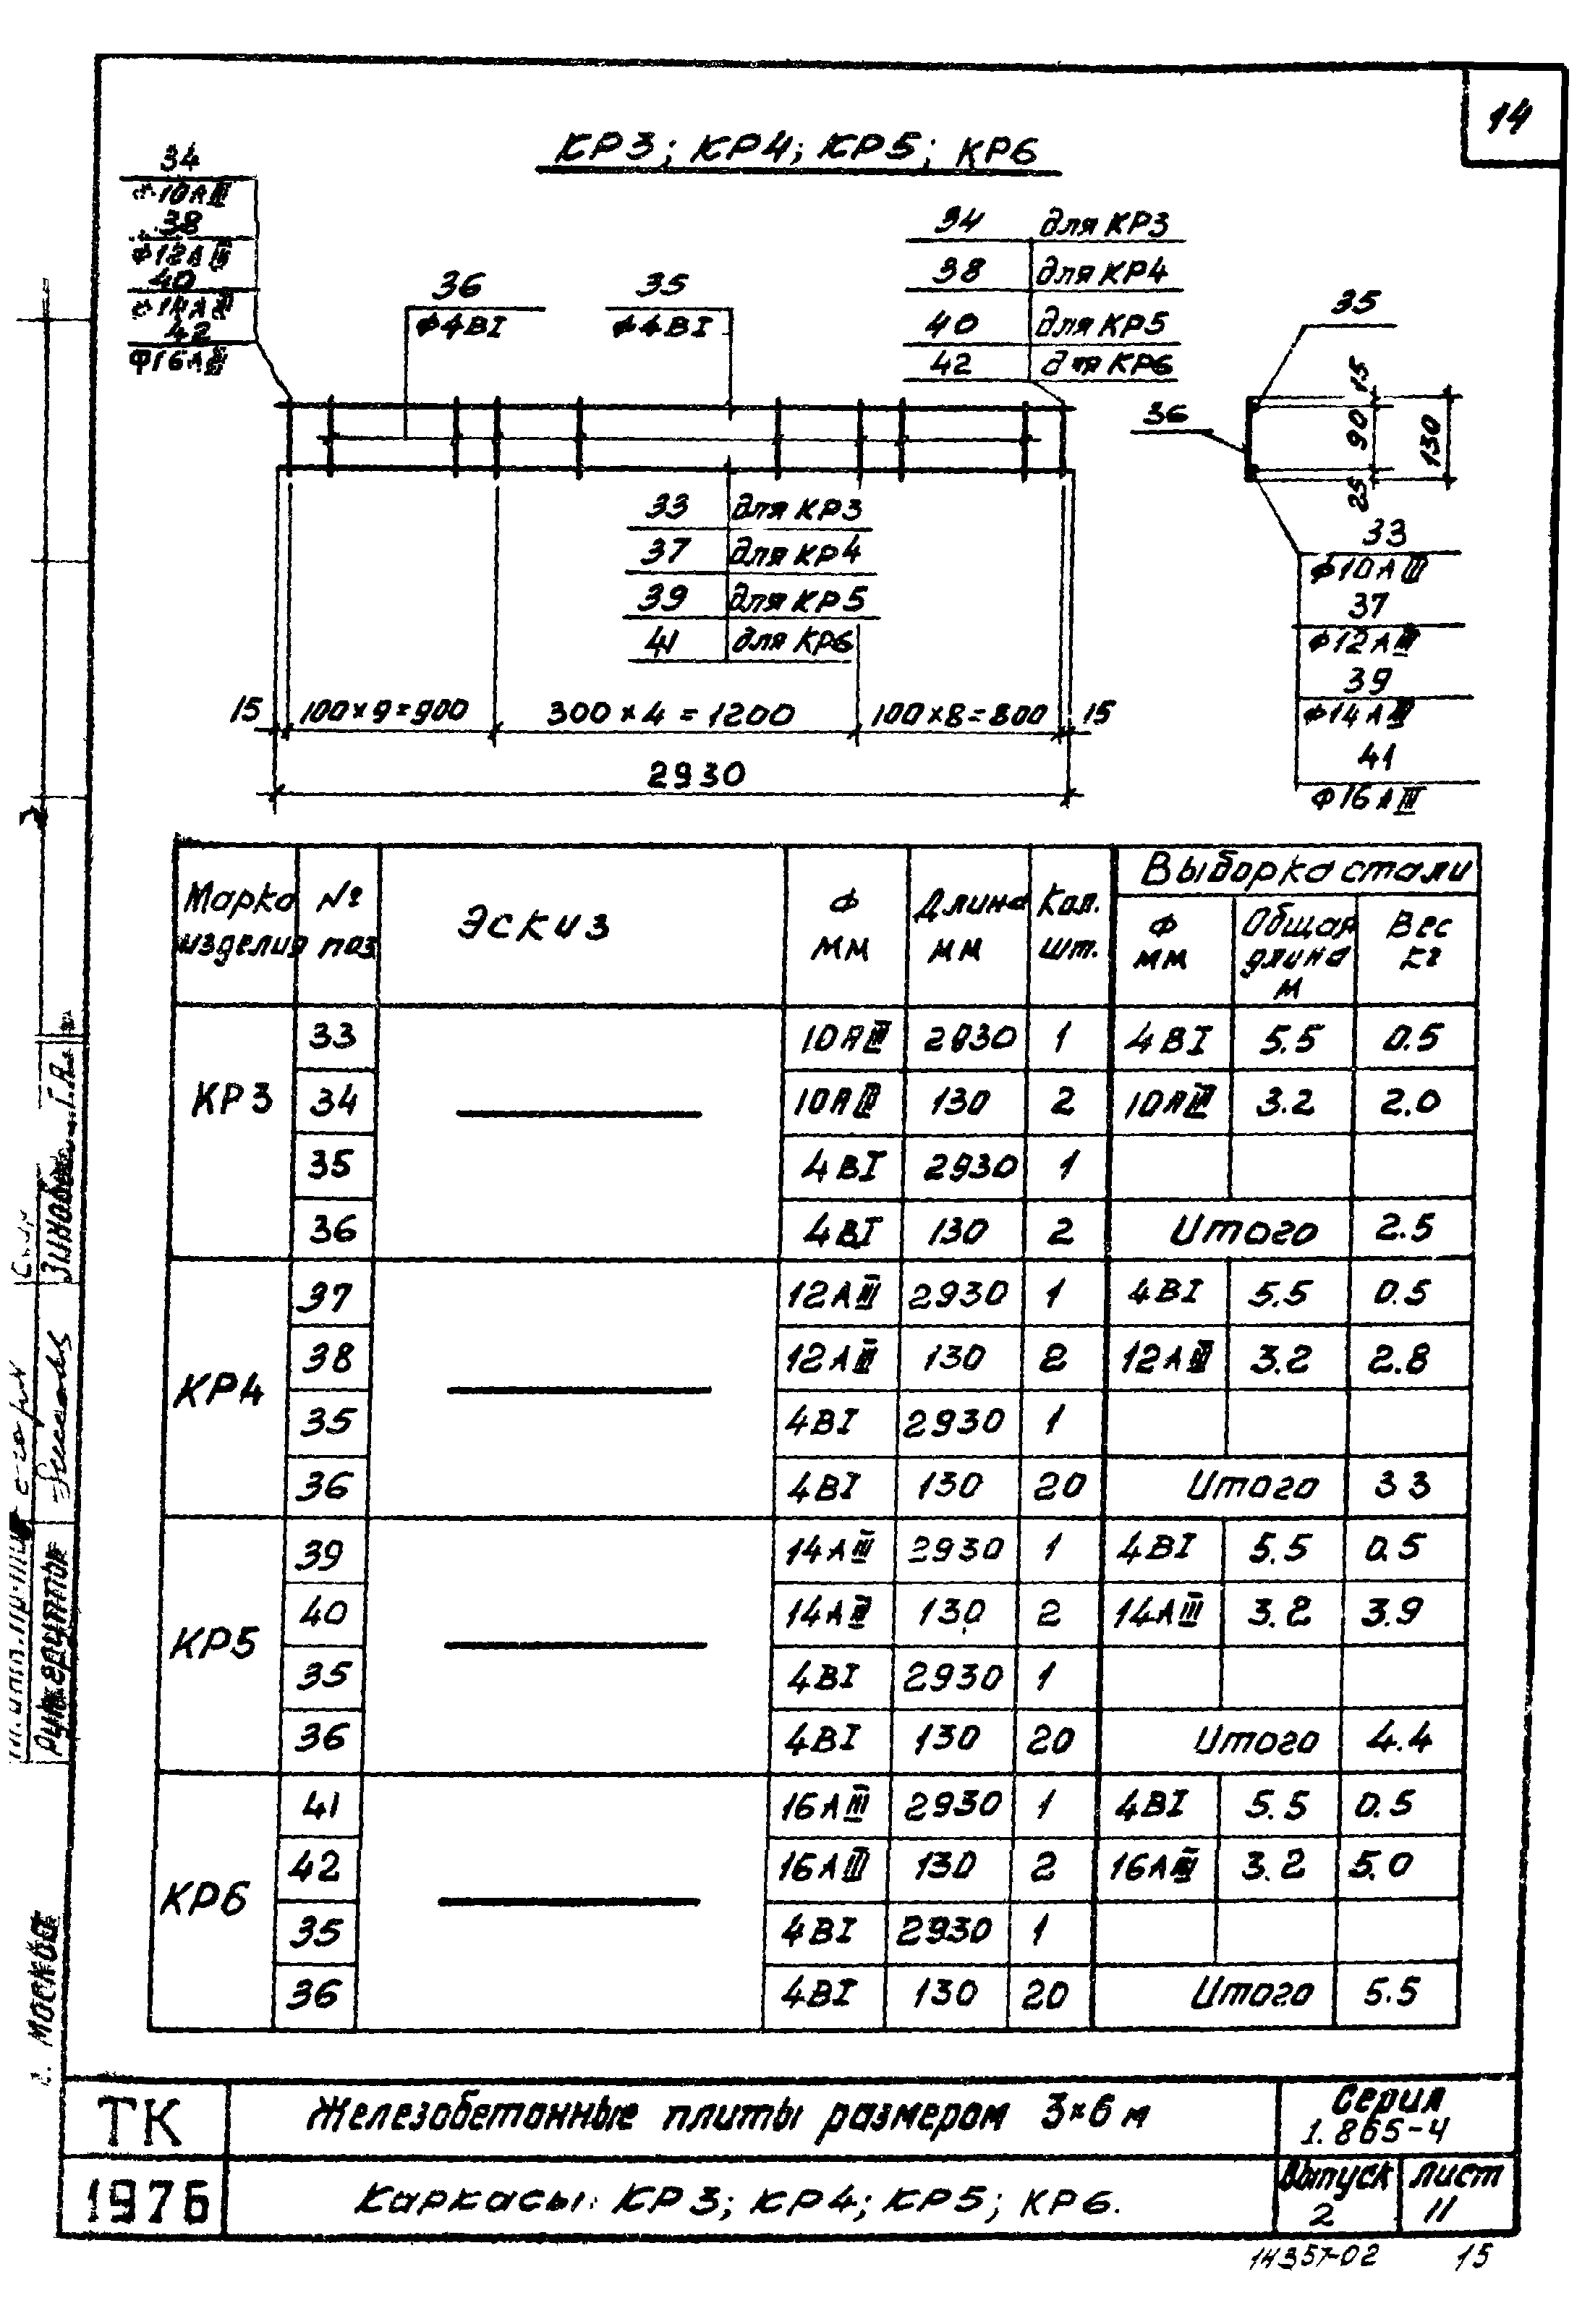 14
КР3; КР4; КР5; КР6
34
Ф10АIII
38
Ф12АIII
40
Ф14АIII
42
Ф16АIII
36
Ф4ВI
35
Ф4ВI
34 для КР3
38 для КР4
40 для КР5
42 для КР6
35
36
15
90
25
130
33 для КР3
37 для КР4
39 для КР5
41 для КР6
33
Ф10АIII
37
Ф12АIII
39
Ф14АIII
41
Ф16АIII
15 100×9=900 300×4=1200 100×8=800 15
2930
Марка изделия № поз Эскиз Ф мм Длина мм Кол. шт. Выборка стали
Ф мм Общая длина м Вес кг
КР3
33 10АIII 2930 1 4ВI 5.5 0.5
34 10АIII 130 2 10АIII 3.2 2.0
35 4ВI 2930 1
36 4ВI 130 2 Итого 2.5
КР4
37 12АIII 2930 1 4ВI 5.5 0.5
38 12АIII 130 2 12АIII 3.2 2.8
35 4ВI 2930 1
36 4ВI 130 20 Итого 3 3
КР5
39 14АIII 2930 1 4ВI 5.5 0.5
40 14АIII 130 2 14АIII 3.2 3.9
35 4ВI 2930 1
36 4ВI 130 20 Итого 4.4
КР6
41 16АIII 2930 1 4ВI 5.5 0.5
42 16АIII 130 2 16АIII 3.2 5.0
35 4ВI 2930 1
36 4ВI 130 20 Итого 5.5
г. Москва
ТК Железобетонные плиты размером 3×6 м Серия 1.865-4
1976 Каркасы: КР3; КР4; КР5; КР6. Выпуск 2 лист 11
14357-02 15